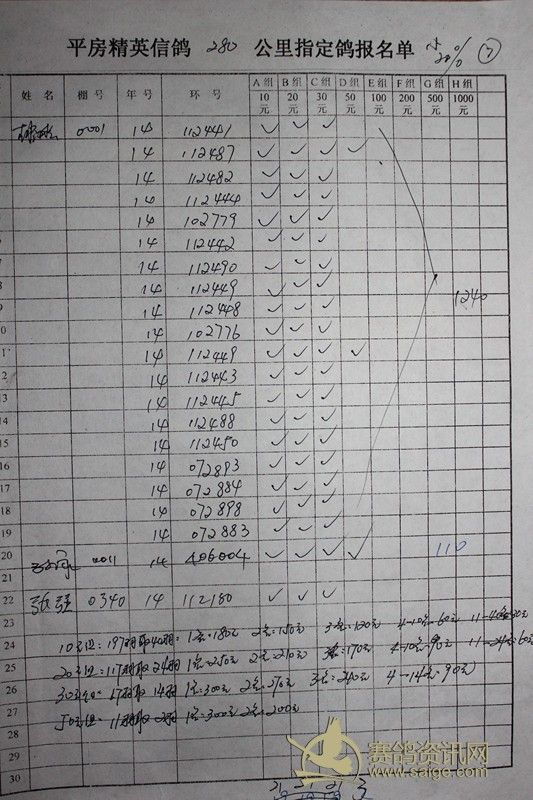 平房精英信鸽 280 公里指定鸽报名单 20% 7
姓名 棚号 年号 环号 A组 10元 B组 20元 C组 30元 D组 50元 E组 100元 F组 200元 G组 500元 H组 1000元
0001 14 112441 ✓ ✓ ✓
14 112487 ✓ ✓ ✓ ✓
14 112482 ✓ ✓ ✓
14 112444 ✓ ✓ ✓
14 102779 ✓ ✓ ✓
14 112442 ✓ ✓ ✓
14 112490 ✓ ✓ ✓
14 112449 ✓ ✓ ✓
14 112448 ✓ ✓ ✓ 1240
14 102776 ✓ ✓ ✓
14 112449 ✓ ✓ ✓ ✓
12 14 112443 ✓ ✓ ✓
13 14 112445 ✓ ✓ ✓
14 14 112488 ✓ ✓ ✓
15 14 112450 ✓ ✓ ✓
16 14 072893 ✓ ✓ ✓
17 14 072884 ✓ ✓ ✓
18 14 072898 ✓ ✓ ✓
19 14 072883 ✓ ✓ ✓
20 0011 14 406004 ✓ ✓ ✓ ✓ 110
21
22 张强 0340 14 112180 ✓ ✓ ✓
23
24 10元组: 197羽取40羽: 1名:180元 2名:150元 3名:120元 4-10名60元 11-40名30元
25 20元组:117羽取24羽 1名:250元 2名:210元 3名:170元 4-10名90元 11-24名60元
26 30元组: 羽取14羽 1名:300元 2名:270元 3名:240元 4-14名:90元
27 50元组: 11羽取2羽 1名:300元 2名:200元
28
29
30
赛鸽资讯网
www.saige.com